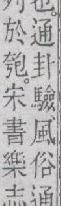 也。通卦驗風俗通
列於匏。宋書樂志